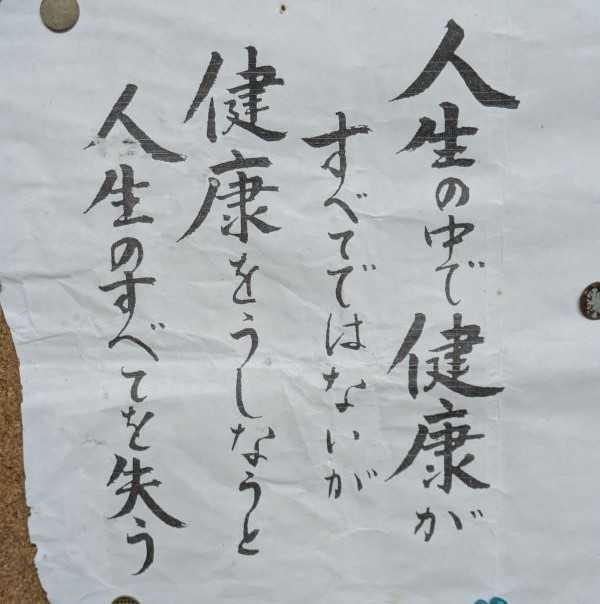 人生の中で健康が
すべてではないが
健康をうしなうと
人生のすべてを失う